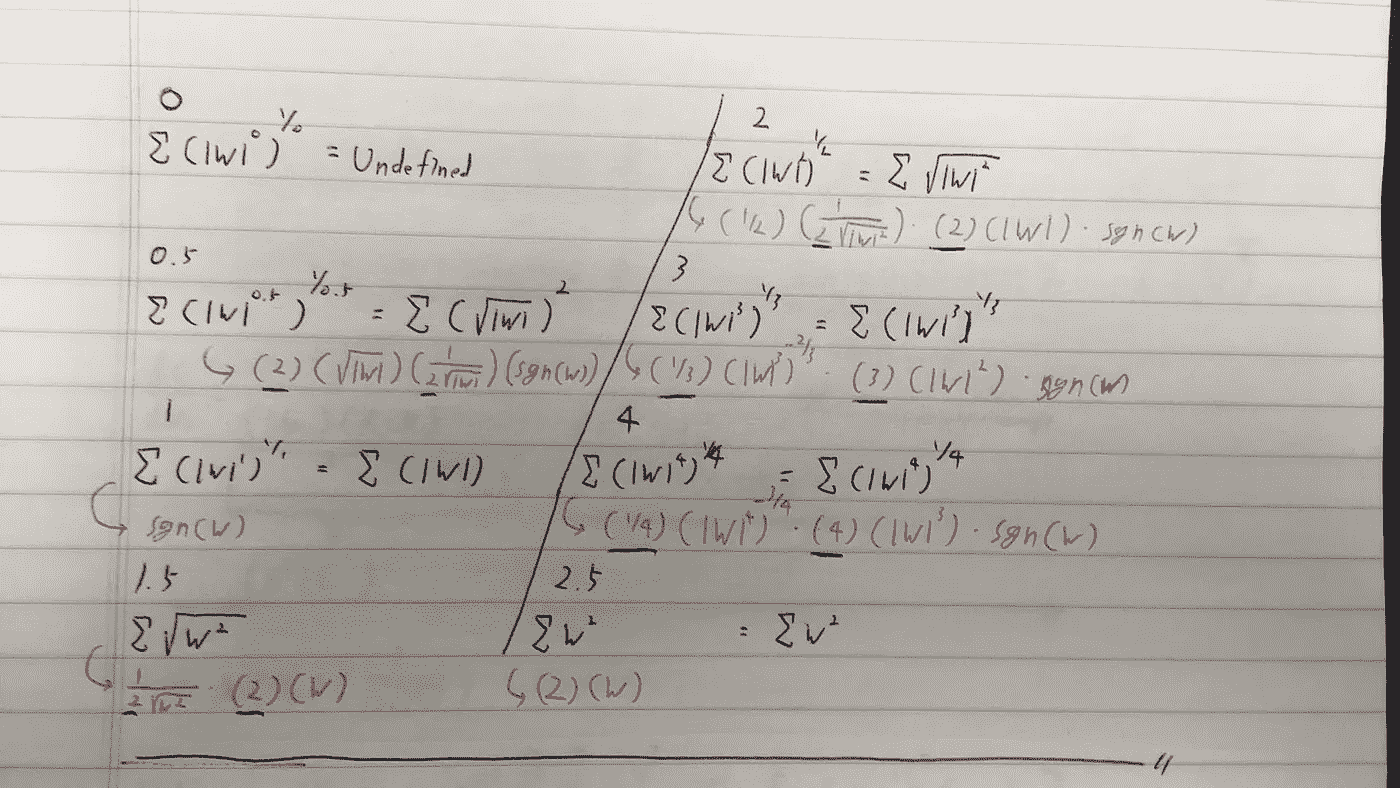 0
Σ(|w|⁰)^(1/0) = Undefined
0.5
Σ(|w|^0.5)^(1/0.5) = Σ(√|w|)²
↳ (2)(√|w|)(1/(2√|w|))(sgn(w))
1
Σ(|w|¹)^(1/1) = Σ(|w|)
↳ sgn(w)
1.5
Σ√w²
↳ 1/(2√w²) · (2)(w)
2
Σ(|w|²)^(1/2) = Σ√|w|²
↳ (1/2)(1/(2√|w|²)) · (2)(|w|) · sgn(w)
3
Σ(|w|³)^(1/3) = Σ(|w|³)^(1/3)
↳ (1/3)(|w|³)^(-2/3) · (3)(|w|²) · sgn(w)
4
Σ(|w|⁴)^(1/4) = Σ(|w|⁴)^(1/4)
↳ (1/4)(|w|⁴)^(-3/4) · (4)(|w|³) · sgn(w)
2.5
Σw² = Σw²
↳ (2)(w)